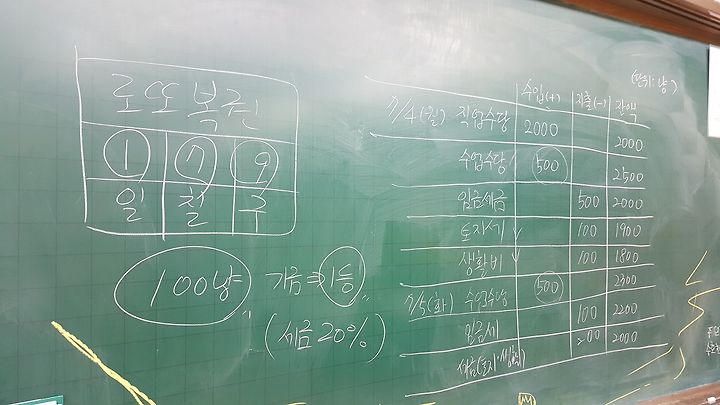 로또복권
① ⑦ ⑨
일 칠 구
100냥 기금 ⇒ 1등
(세금 20%)
(단위: 냥)
수입(+) 지출(-) 잔액
7/4(월) 직업수당 2000 2000
수업수당 500 2500
임금세금 500 2000
토지세 100 1900
생활비 100 1800
7/5(화) 수업수당 500 2300
임금세 100 2200
세금(토지, 생활) 200 2000